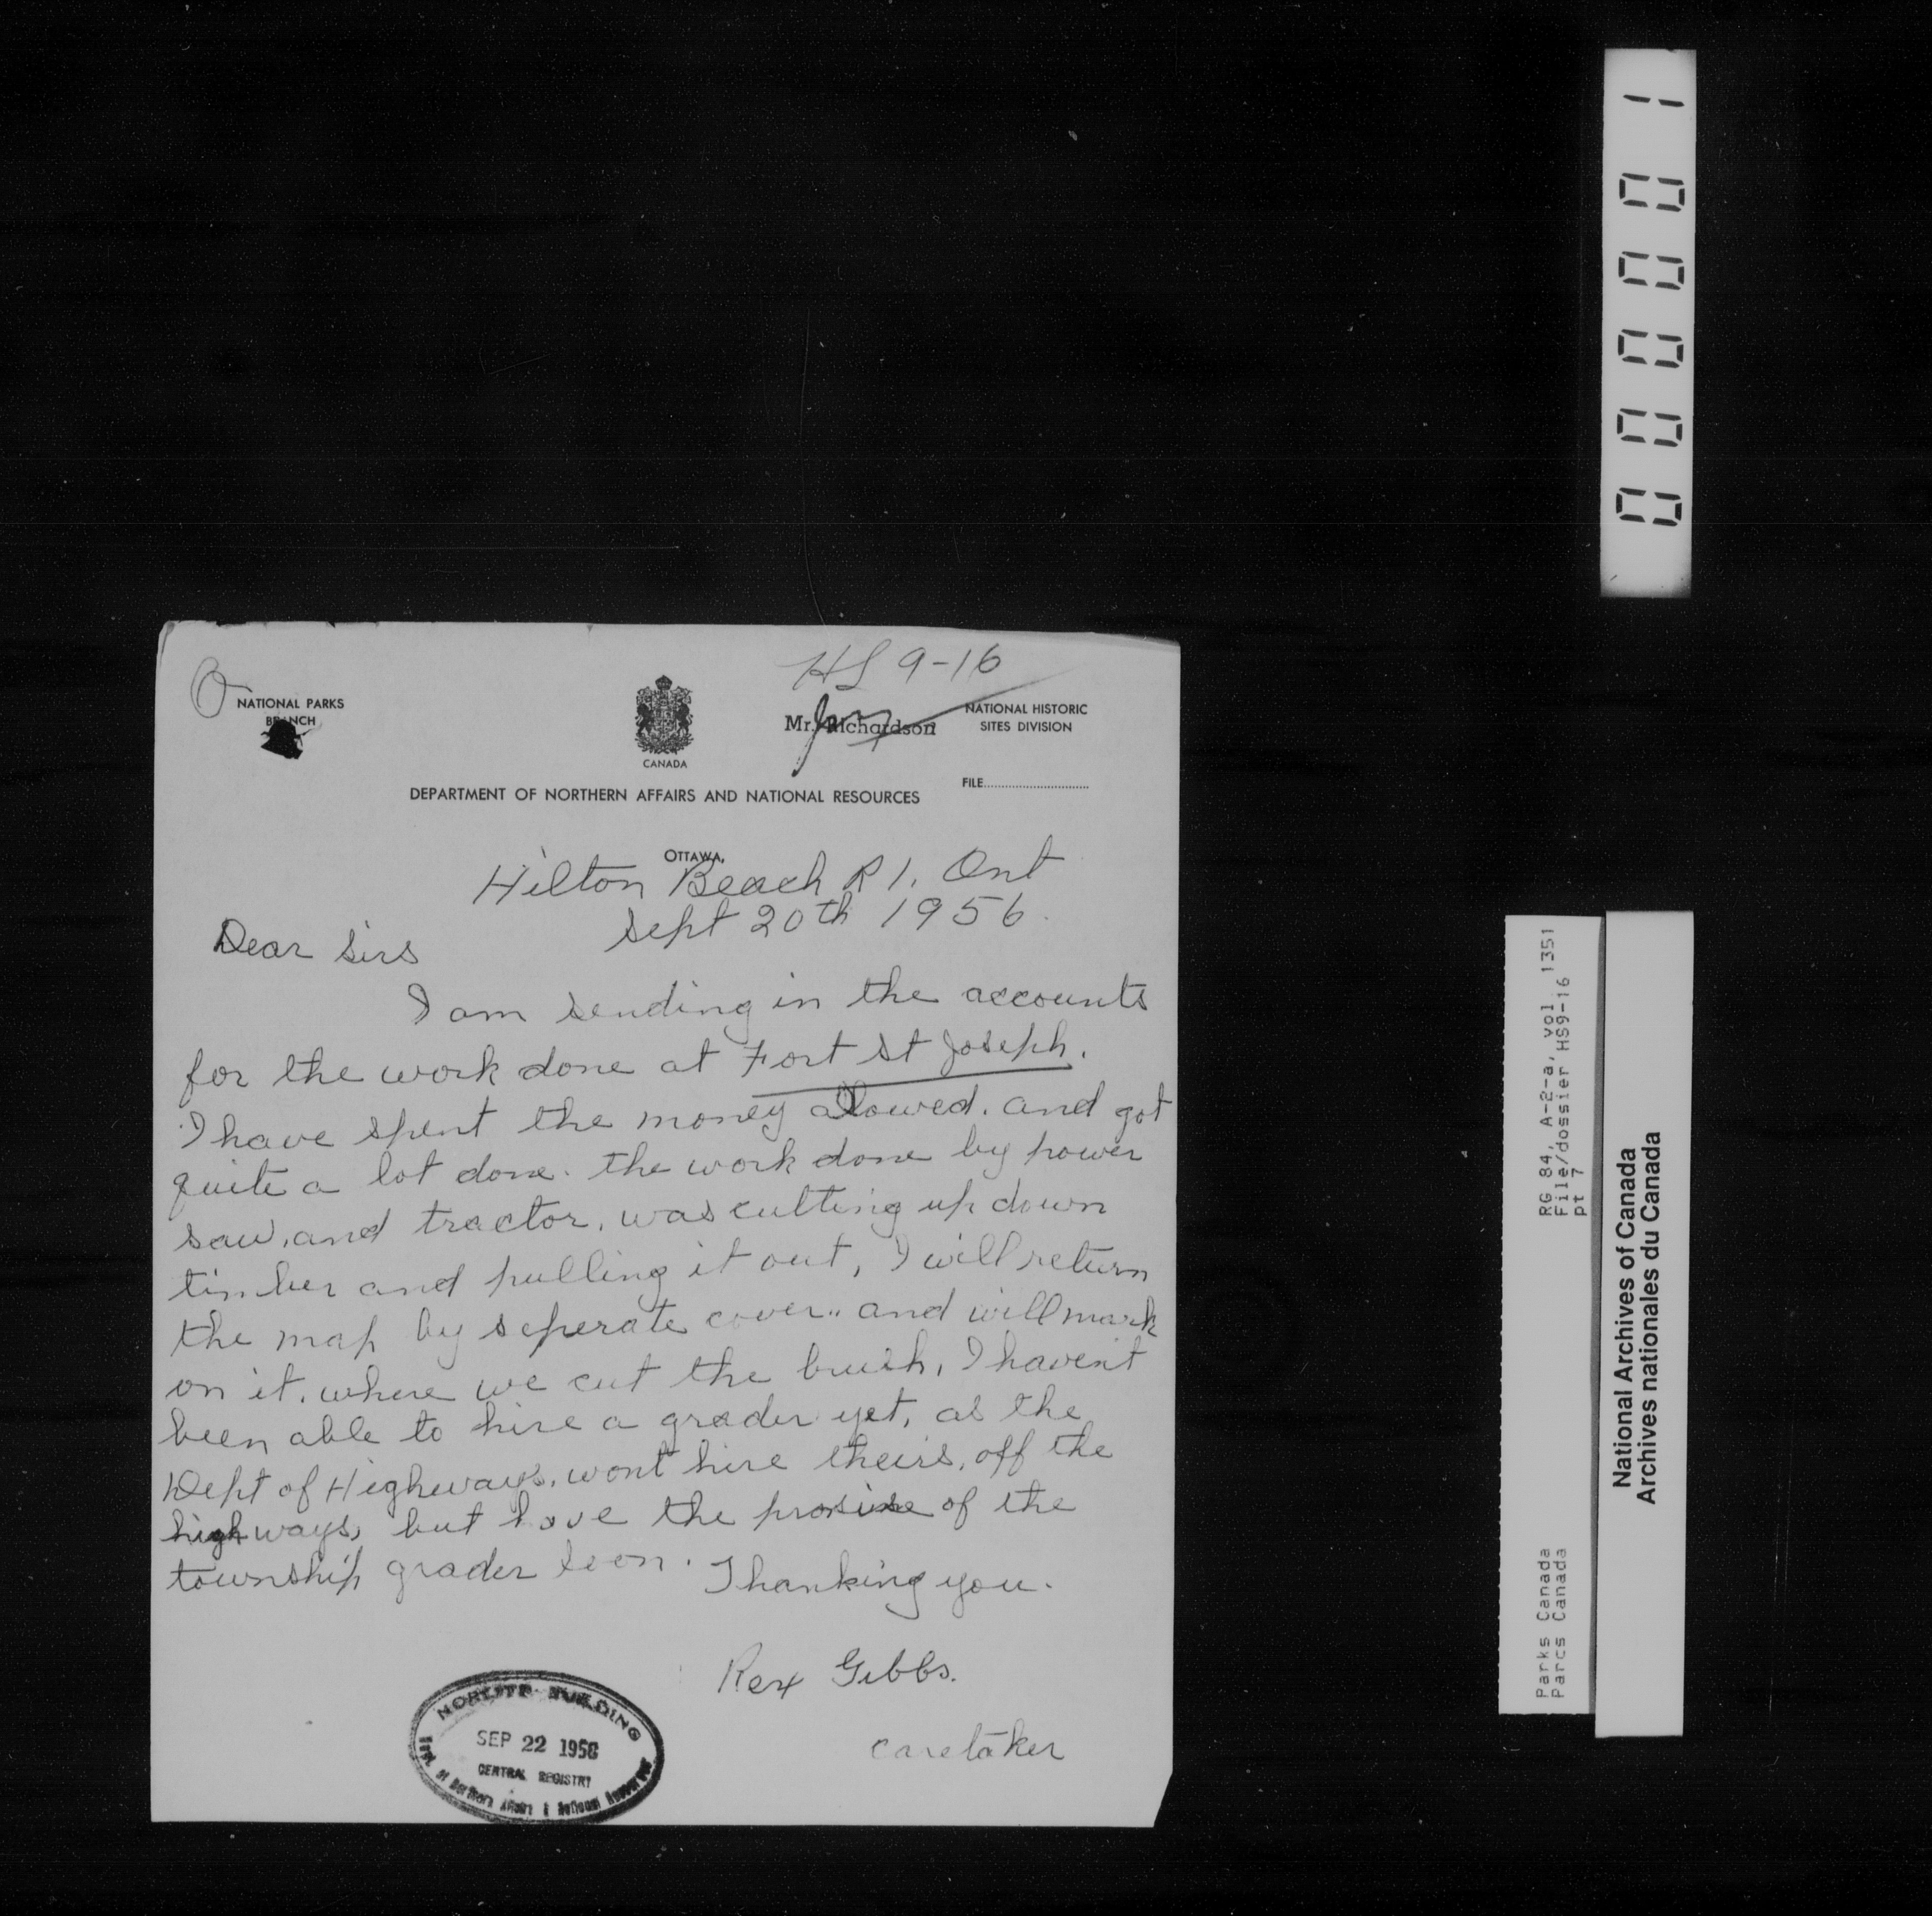 000001
HS 9-16
NATIONAL PARKS
BRANCH
CANADA
Mr. Richardson
NATIONAL HISTORIC
SITES DIVISION
FILE
DEPARTMENT OF NORTHERN AFFAIRS AND NATIONAL RESOURCES
OTTAWA,
Hilton Beach R 1. Ont
Sept 20th 1956.
Dear Sirs
I am sending in the accounts
for the work done at Fort St Joseph.
I have spent the money allowed. and got
quite a lot done. the work done by power
saw, and tractor, was cutting up down
timber and pulling it out, I will return
the map by seperate cover.. and will mark
on it. where we cut the brush, I havent
been able to hire a grader yet, as the
Dept of Highways, wont hire theirs, off the
highways, but have the promise of the
township grader soon. Thanking you.
Rex Gibbs.
caretaker
NORLITE BUILDING
SEP 22 1956
CENTRAL REGISTRY
Dept. of Northern Affairs & National Resources
RG 84, A-2-a, vol 1351
File/dossier HS9-16
pt 7
Parks Canada
Parcs Canada
National Archives of Canada
Archives nationales du Canada